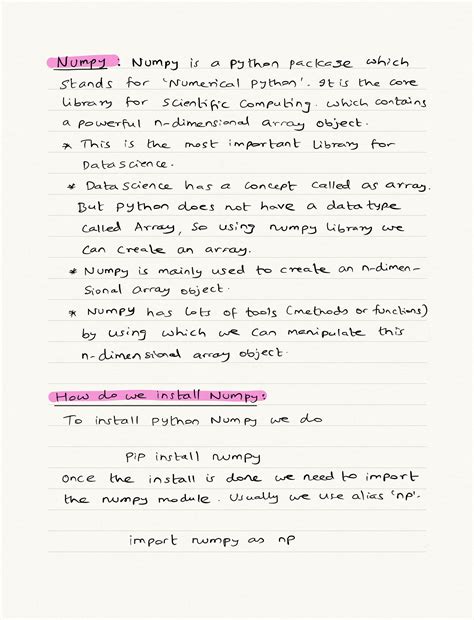 Numpy : Numpy is a python package which
stands for 'Numerical Python'. It is the core
library for scientific computing. which contains
a powerful n-dimensional array object.
* This is the most important library for
Datascience.
* Datascience has a concept called as array.
But python does not have a datatype
called Array, so using numpy library we
can create an array.
* Numpy is mainly used to create an n-dimen-
sional array object.
* Numpy has lots of tools (methods or functions)
by using which we can manipulate this
n-dimensional array object.
How do we install Numpy:
To install python Numpy we do
pip install numpy
once the install is done we need to import
the numpy module. Usually we use alias 'np'.
import numpy as np